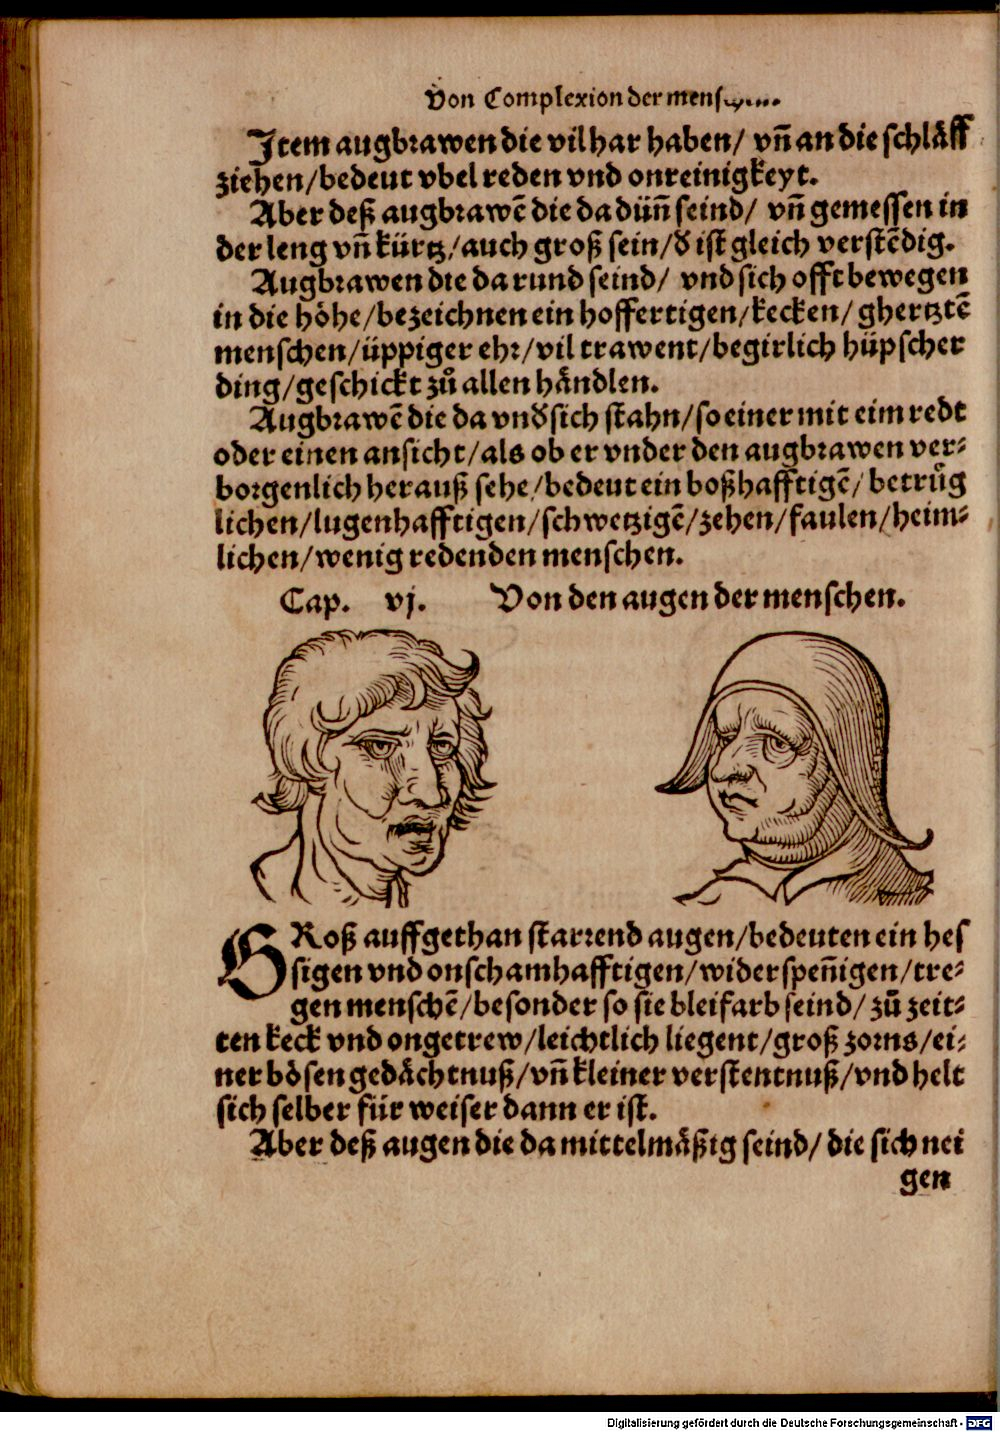 Von Complexion der menschen.
Item augbrawen die vil har haben/ vñ an die schläff
ziehen/bedeut vbel reden vnd onreinigkeyt.
Aber deß augbrawē die da dünn seind/ vñ gemessen in
der leng vñ kürtz/auch groß sein/ð ist gleich verstēdig.
Augbrawen die da rund seind/ vnd sich offt bewegen
in die höhe/bezeichnen ein hoffertigen/kecken/ ghertztē
menschen/üppiger ehr/vil trawent/begirlich hüpscher
ding/geschickt zů allen händlen.
Augbrawē die da vnð sich stahn/so einer mit eim redt
oder einen ansicht/als ob er vnder den augbrawen ver⸗
borgenlich herauß sehe/bedeut ein boßhafftigē/ betrůg
lichen/lugenhafftigen/schwetzigē/zehen/faulen/heim⸗
lichen/wenig redenden menschen.
Cap. vj. Von den augen der menschen.
GRoß auffgethan starrend augen/bedeuten ein hes
sigen vnd onschamhafftigen/widerspeñigen/tre⸗
gen menschē/besonder so sie bleifarb seind/ zů zeit⸗
ten keck vnd ongetrew/leichtlich liegent/groß zorns/ei⸗
ner bösen gedächtnuß/vñ kleiner verstentnuß/vnd helt
sich selber für weiser dann er ist.
Aber deß augen die da mittelmäßig seind/ die sich nei
gen
Digitalisierung gefördert durch die Deutsche Forschungsgemeinschaft - DFG